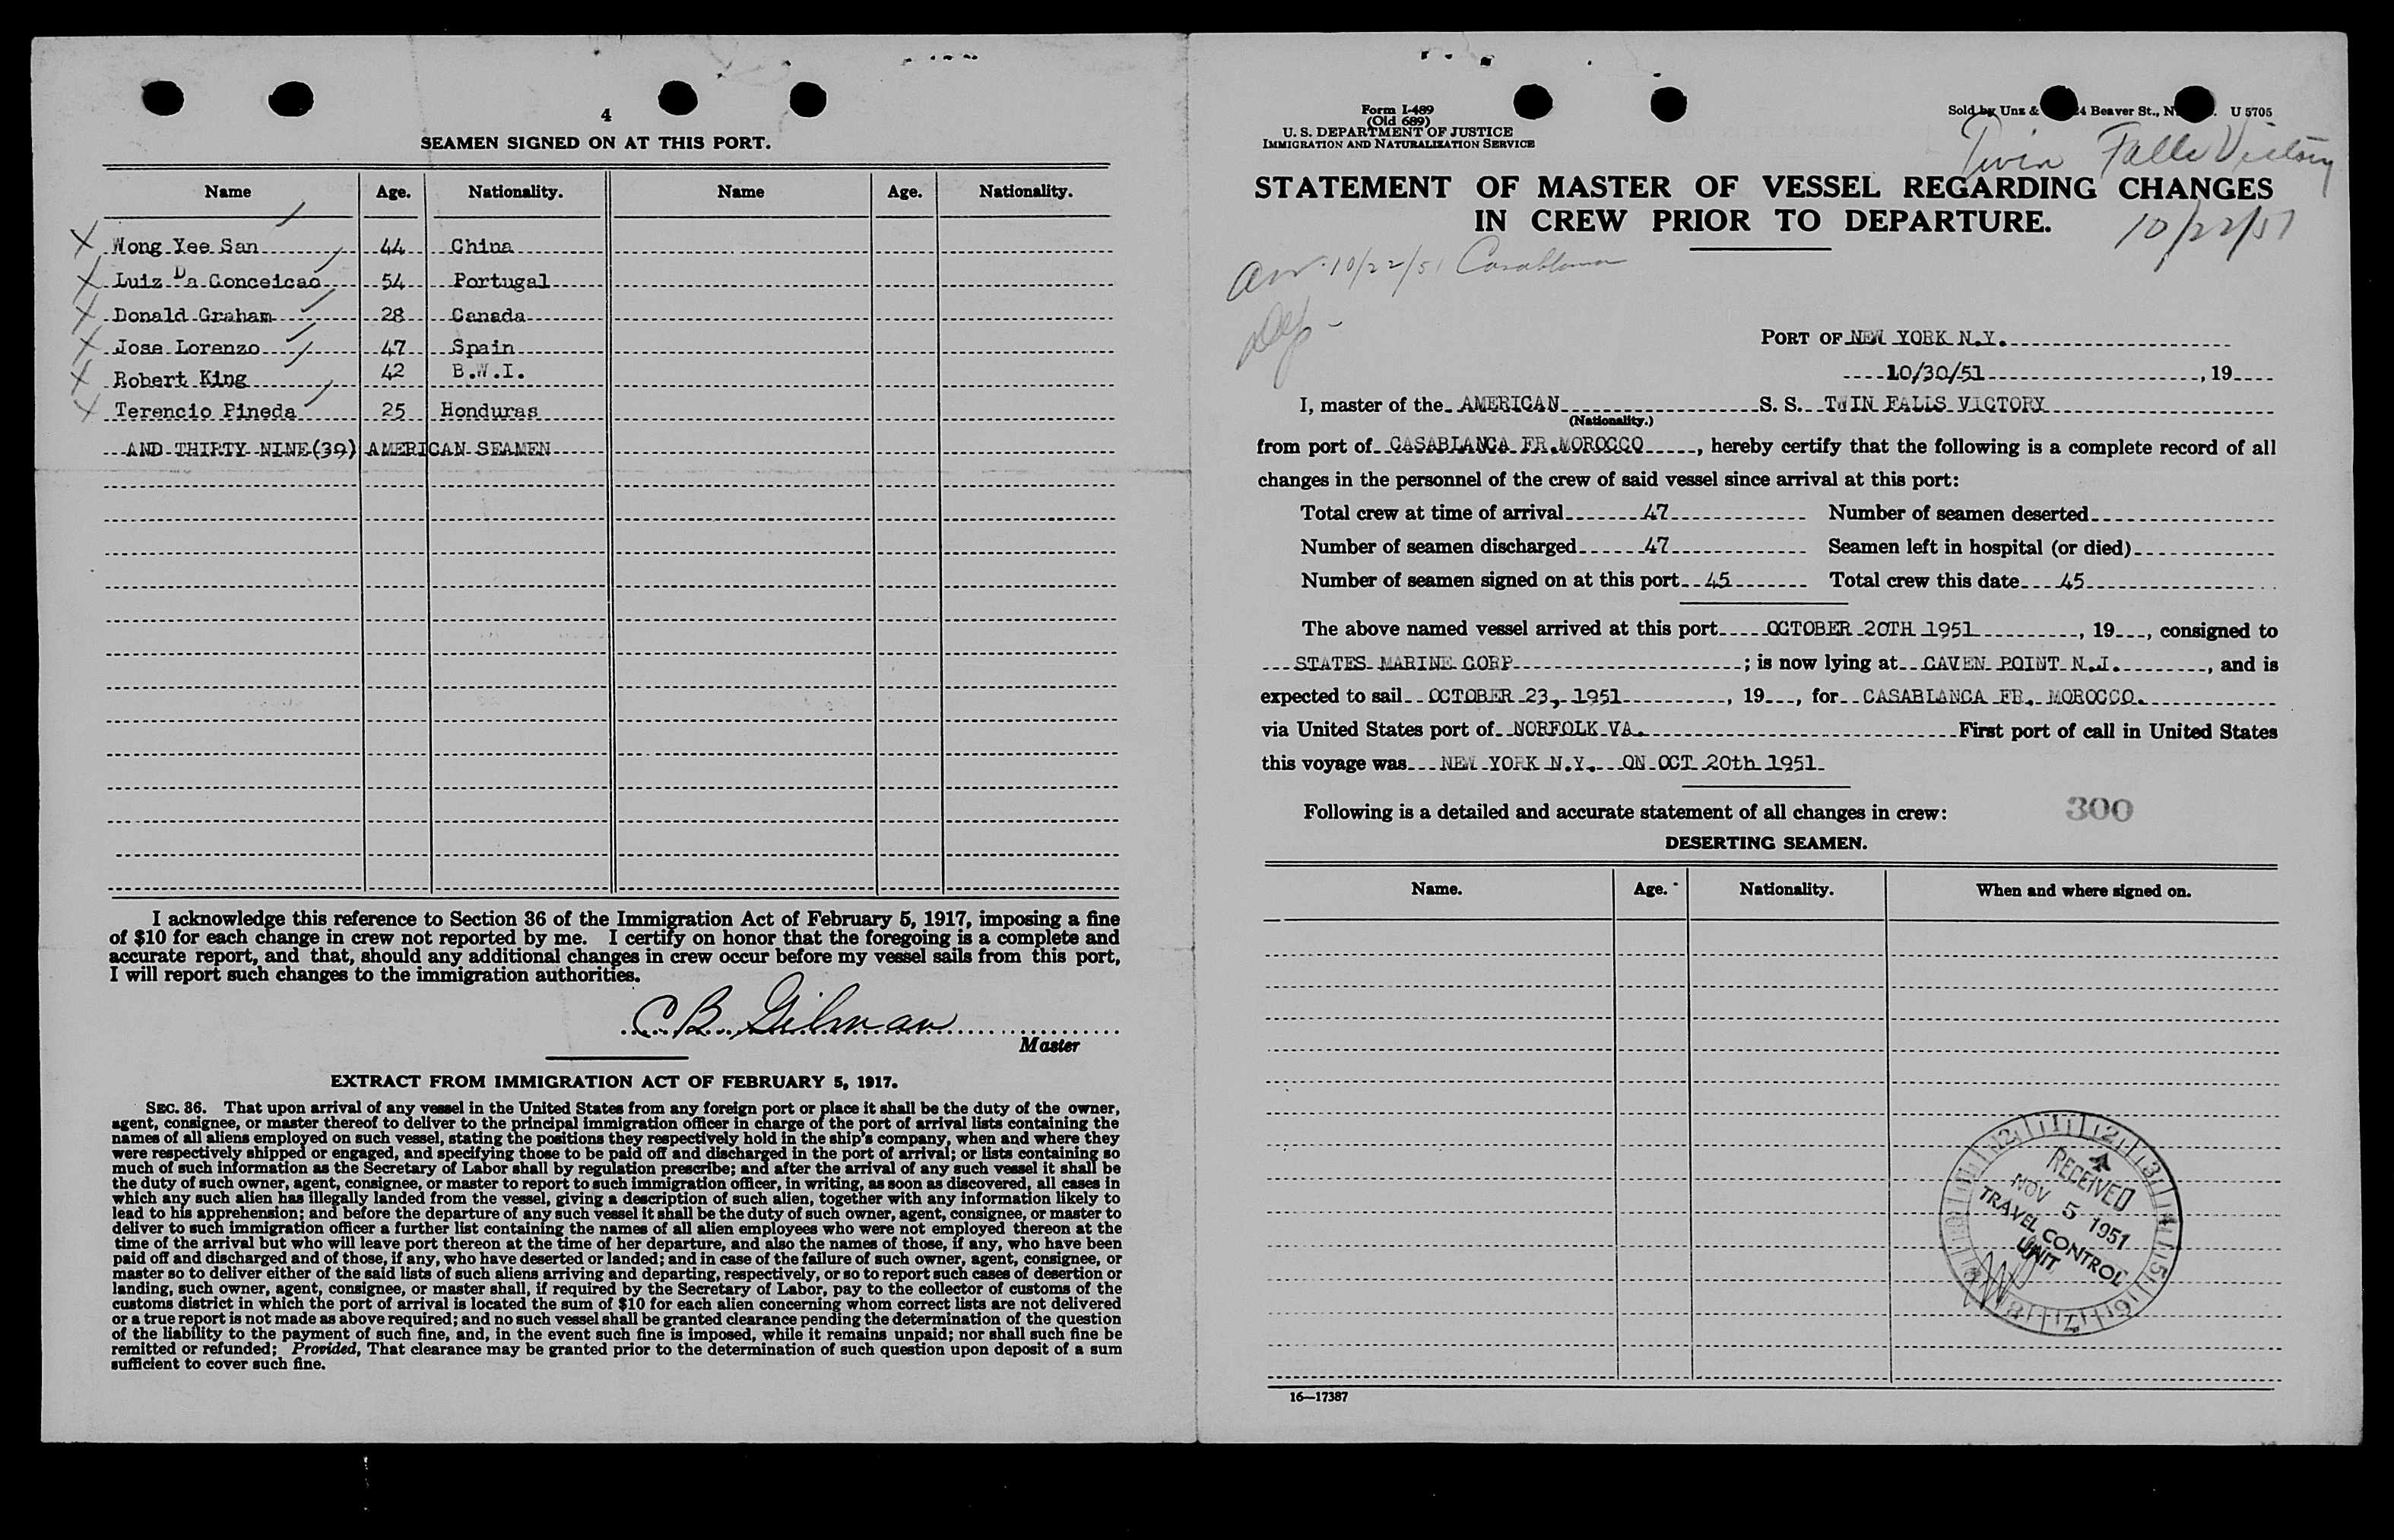 4
SEAMEN SIGNED ON AT THIS PORT.
Name Age. Nationality. Name Age. Nationality.
Wong Yee San 44 China
Luiz Da Conceicao 54 Portugal
Donald Graham 28 Canada
Jose Lorenzo 47 Spain
Robert King 42 B.W.I.
Terencio Pineda 25 Honduras
AND THIRTY NINE(39) AMERICAN SEAMEN
I acknowledge this reference to Section 36 of the Immigration Act of February 5, 1917, imposing a fine
of $10 for each change in crew not reported by me. I certify on honor that the foregoing is a complete and
accurate report, and that, should any additional changes in crew occur before my vessel sails from this port,
I will report such changes to the immigration authorities.
C B Gilman
Master
EXTRACT FROM IMMIGRATION ACT OF FEBRUARY 5, 1917.
SEC. 36. That upon arrival of any vessel in the United States from any foreign port or place it shall be the duty of the owner,
agent, consignee, or master thereof to deliver to the principal immigration officer in charge of the port of arrival lists containing the
names of all aliens employed on such vessel, stating the positions they respectively hold in the ship's company, when and where they
were respectively shipped or engaged, and specifying those to be paid off and discharged in the port of arrival; or lists containing so
much of such information as the Secretary of Labor shall by regulation prescribe; and after the arrival of any such vessel it shall be
the duty of such owner, agent, consignee, or master to report to such immigration officer, in writing, as soon as discovered, all cases in
which any such alien has illegally landed from the vessel, giving a description of such alien, together with any information likely to
lead to his apprehension; and before the departure of any such vessel it shall be the duty of such owner, agent, consignee, or master to
deliver to such immigration officer a further list containing the names of all alien employees who were not employed thereon at the
time of the arrival but who will leave port thereon at the time of her departure, and also the names of those, if any, who have been
paid off and discharged and of those, if any, who have deserted or landed; and in case of the failure of such owner, agent, consignee, or
master so to deliver either of the said lists of such aliens arriving and departing, respectively, or so to report such cases of desertion or
landing, such owner, agent, consignee, or master shall, if required by the Secretary of Labor, pay to the collector of customs of the
customs district in which the port of arrival is located the sum of $10 for each alien concerning whom correct lists are not delivered
or a true report is not made as above required; and no such vessel shall be granted clearance pending the determination of the question
of the liability to the payment of such fine, and, in the event such fine is imposed, while it remains unpaid; nor shall such fine be
remitted or refunded; Provided, That clearance may be granted prior to the determination of such question upon deposit of a sum
sufficient to cover such fine.
Form I-489
(Old 689)
U. S. DEPARTMENT OF JUSTICE
IMMIGRATION AND NATURALIZATION SERVICE
Sold by Unz & 24 Beaver St., N. U 5705
Twin Falls Victory
STATEMENT OF MASTER OF VESSEL REGARDING CHANGES
IN CREW PRIOR TO DEPARTURE.
10/22/51
arr. 10/22/51 Casablanca
Dep -
PORT OF NEW YORK N.Y.
10/30/51, 19
I, master of the AMERICAN S. S. TWIN FALLS VICTORY
(Nationality.)
from port of CASABLANCA FR.MOROCCO, hereby certify that the following is a complete record of all
changes in the personnel of the crew of said vessel since arrival at this port:
Total crew at time of arrival 47 Number of seamen deserted
Number of seamen discharged 47 Seamen left in hospital (or died)
Number of seamen signed on at this port 45 Total crew this date 45
The above named vessel arrived at this port OCTOBER 20TH 1951, 19, consigned to
STATES MARINE CORP; is now lying at CAVEN POINT N.J., and is
expected to sail OCTOBER 23, 1951, 19, for CASABLANCA FR. MOROCCO.
via United States port of NORFOLK VA. First port of call in United States
this voyage was NEW YORK N.Y. ON OCT 20th 1951
Following is a detailed and accurate statement of all changes in crew: 300
DESERTING SEAMEN.
Name. Age. Nationality. When and where signed on.
12 1 2 3 4 5 6 7 8 9 10 11
RECEIVED
NOV 5 1951
TRAVEL CONTROL
UNIT
16—17387